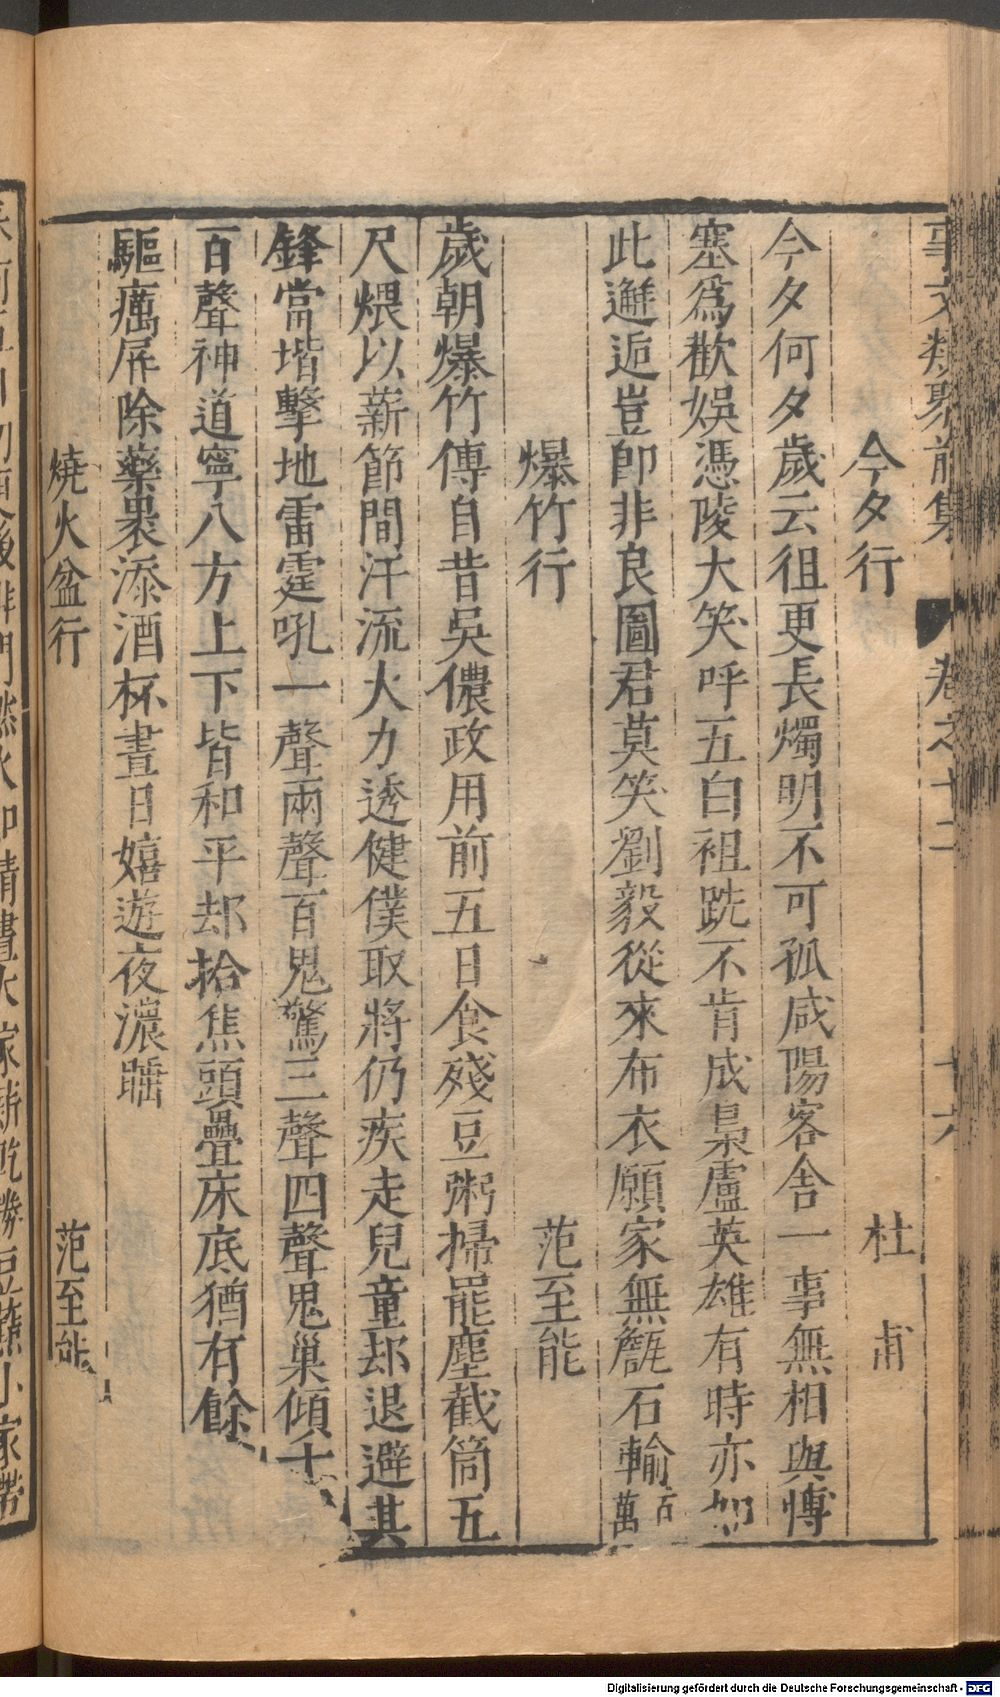 事文類聚前集
卷之十二
十六
今夕行
杜甫
今夕何夕歲云徂更長燭明不可孤咸陽客舍一事無相與愽
塞爲歡娛憑陵大笑呼五白袒跣不肯成梟盧英雄有時亦如
此邂逅豈即非良圖君莫笑劉毅從來布衣願家無甔石輸百萬
爆竹行
范至能
歲朝爆竹傳自昔吳儂政用前五日食殘豆粥掃罷塵截筒五
尺煨以薪節間汗流火力透健僕取將仍疾走兒童却退避其
鋒當堦擊地雷霆吼一聲兩聲百鬼驚三聲四聲鬼巢傾十
百聲神道寧八方上下皆和平却拾焦頭疊床底猶有餘
驅癘屏除藥褁添酒杯晝日嬉遊夜濃睡
燒火盆行
范至能
Digitalisierung gefördert durch die Deutsche Forschungsgemeinschaft - DFG